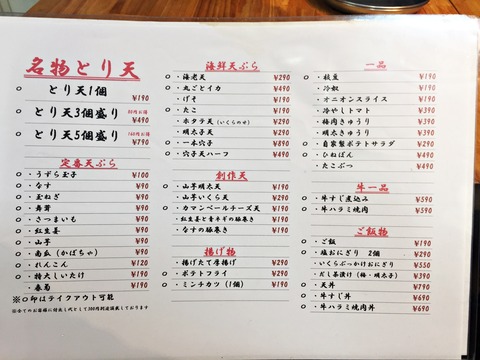 名物とり天
○ とり天1個 ¥190
○ とり天3個盛り 80円お得 ¥490
○ とり天5個盛り 160円お得 ¥790
定番天ぷら
○ ・うずら玉子 ¥100
○ ・なす ¥90
○ ・玉ねぎ ¥90
○ ・舞茸 ¥90
○ ・さつまいも ¥90
○ ・紅生姜 ¥90
○ ・山芋 ¥90
○ ・南瓜(かぼちゃ) ¥90
○ ・れんこん ¥120
○ ・特大しいたけ ¥190
・春菊 ¥190
※○印はテイクアウト可能
海鮮天ぷら
○ ・海老天 ¥290
○ ・丸ごとイカ ¥490
○ ・げそ ¥190
○ ・たこ ¥190
○ ・ホタテ天(いくらのせ) ¥290
・明太子天 ¥290
○ ・一本穴子 ¥890
○ ・穴子天ハーフ ¥490
創作天
○ ・山芋明太天 ¥190
・山芋いくら天 ¥290
○ ・カマンベールチーズ天 ¥190
・紅生姜と青ネギの豚巻き ¥190
・なすの豚巻き ¥190
揚げ物
・揚げたて厚揚げ ¥190
○ ・ポテトフライ ¥190
○ ・ミンチカツ(1個) ¥190
一品
○ ・枝豆 ¥190
○ ・冷奴 ¥190
○ ・オニオンスライス ¥190
○ ・冷やしトマト ¥390
○ ・梅肉きゅうり ¥390
○ ・明太きゅうり ¥390
○ ・自家製ポテトサラダ ¥290
○ ・ひねぽん ¥490
○ ・たこぶつ ¥490
牛一品
○ ・牛すじ煮込み ¥590
○ ・牛ハラミ焼肉 ¥590
ご飯物
○ ・ご飯 ¥190
○ ・塩おにぎり 2個 ¥290
・いくらぶっかけおにぎり ¥550
・だし茶漬け(梅・明太子) ¥390
○ ・天丼 ¥790
○ ・牛すじ丼 ¥690
○ ・牛ハラミ焼肉丼 ¥690